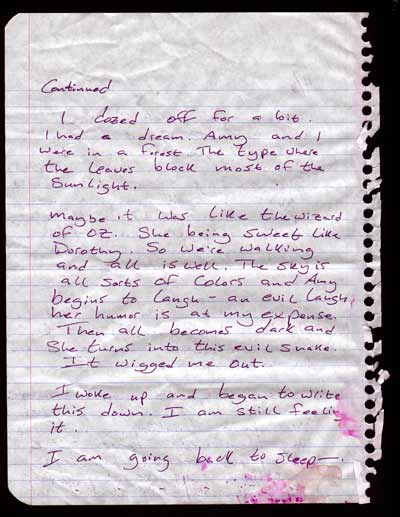 Continued
I dozed off for a bit.
I had a dream. Amy and I
were in a forest. The type where
the leaves block most of the
Sunlight.
maybe it was like the wizard
of OZ. She being sweet like
Dorothy. So we're walking
and all is well. The sky is
all sorts of colors and Amy
begins to laugh - an evil laugh,
her humor is at my expense.
Then all becomes dark and
She turns into this evil snake.
It wigged me out.
I woke up and began to write
this down. I am still feelin
it.
I am going back to sleep—.